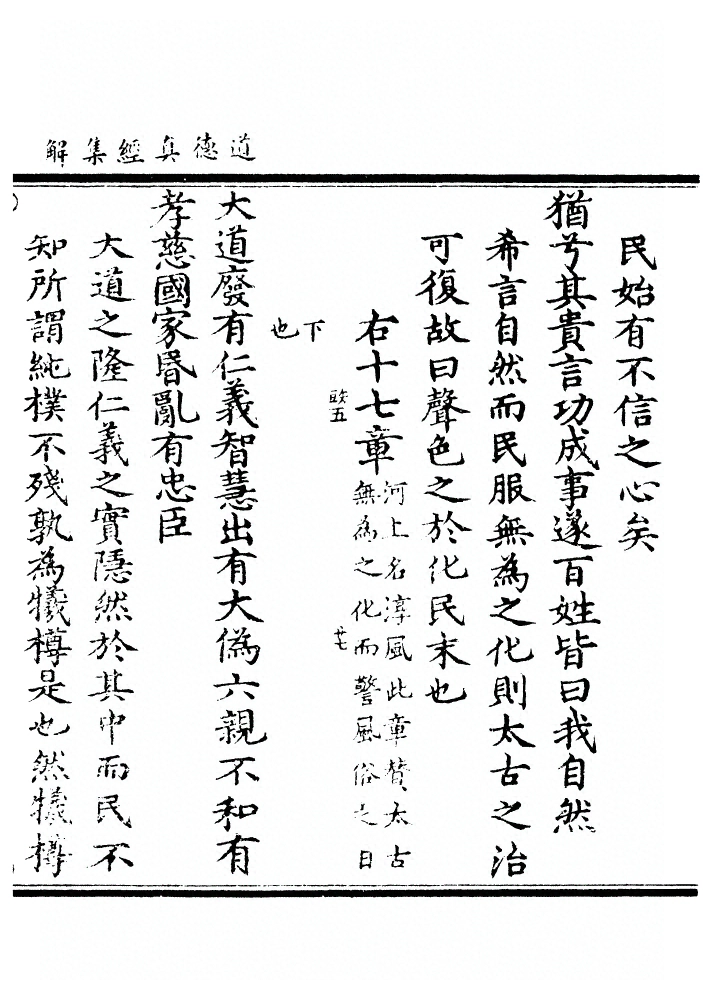 道德真經集解
民始有不信之心矣
猶兮其貴言功成事遂百姓皆曰我自然
希言自然而民服無為之化則太古之治
可復故曰聲色之於化民末也
右十七章
河上名淳風此章贊太古
無為之化而警風俗之日
下
也
欧五
廿七
大道廢有仁義智慧出有大偽六親不和有
孝慈國家昬亂有忠臣
大道之隆仁義之實隱然於其中而民不
知所謂純樸不殘孰為犧樽是也然犧樽